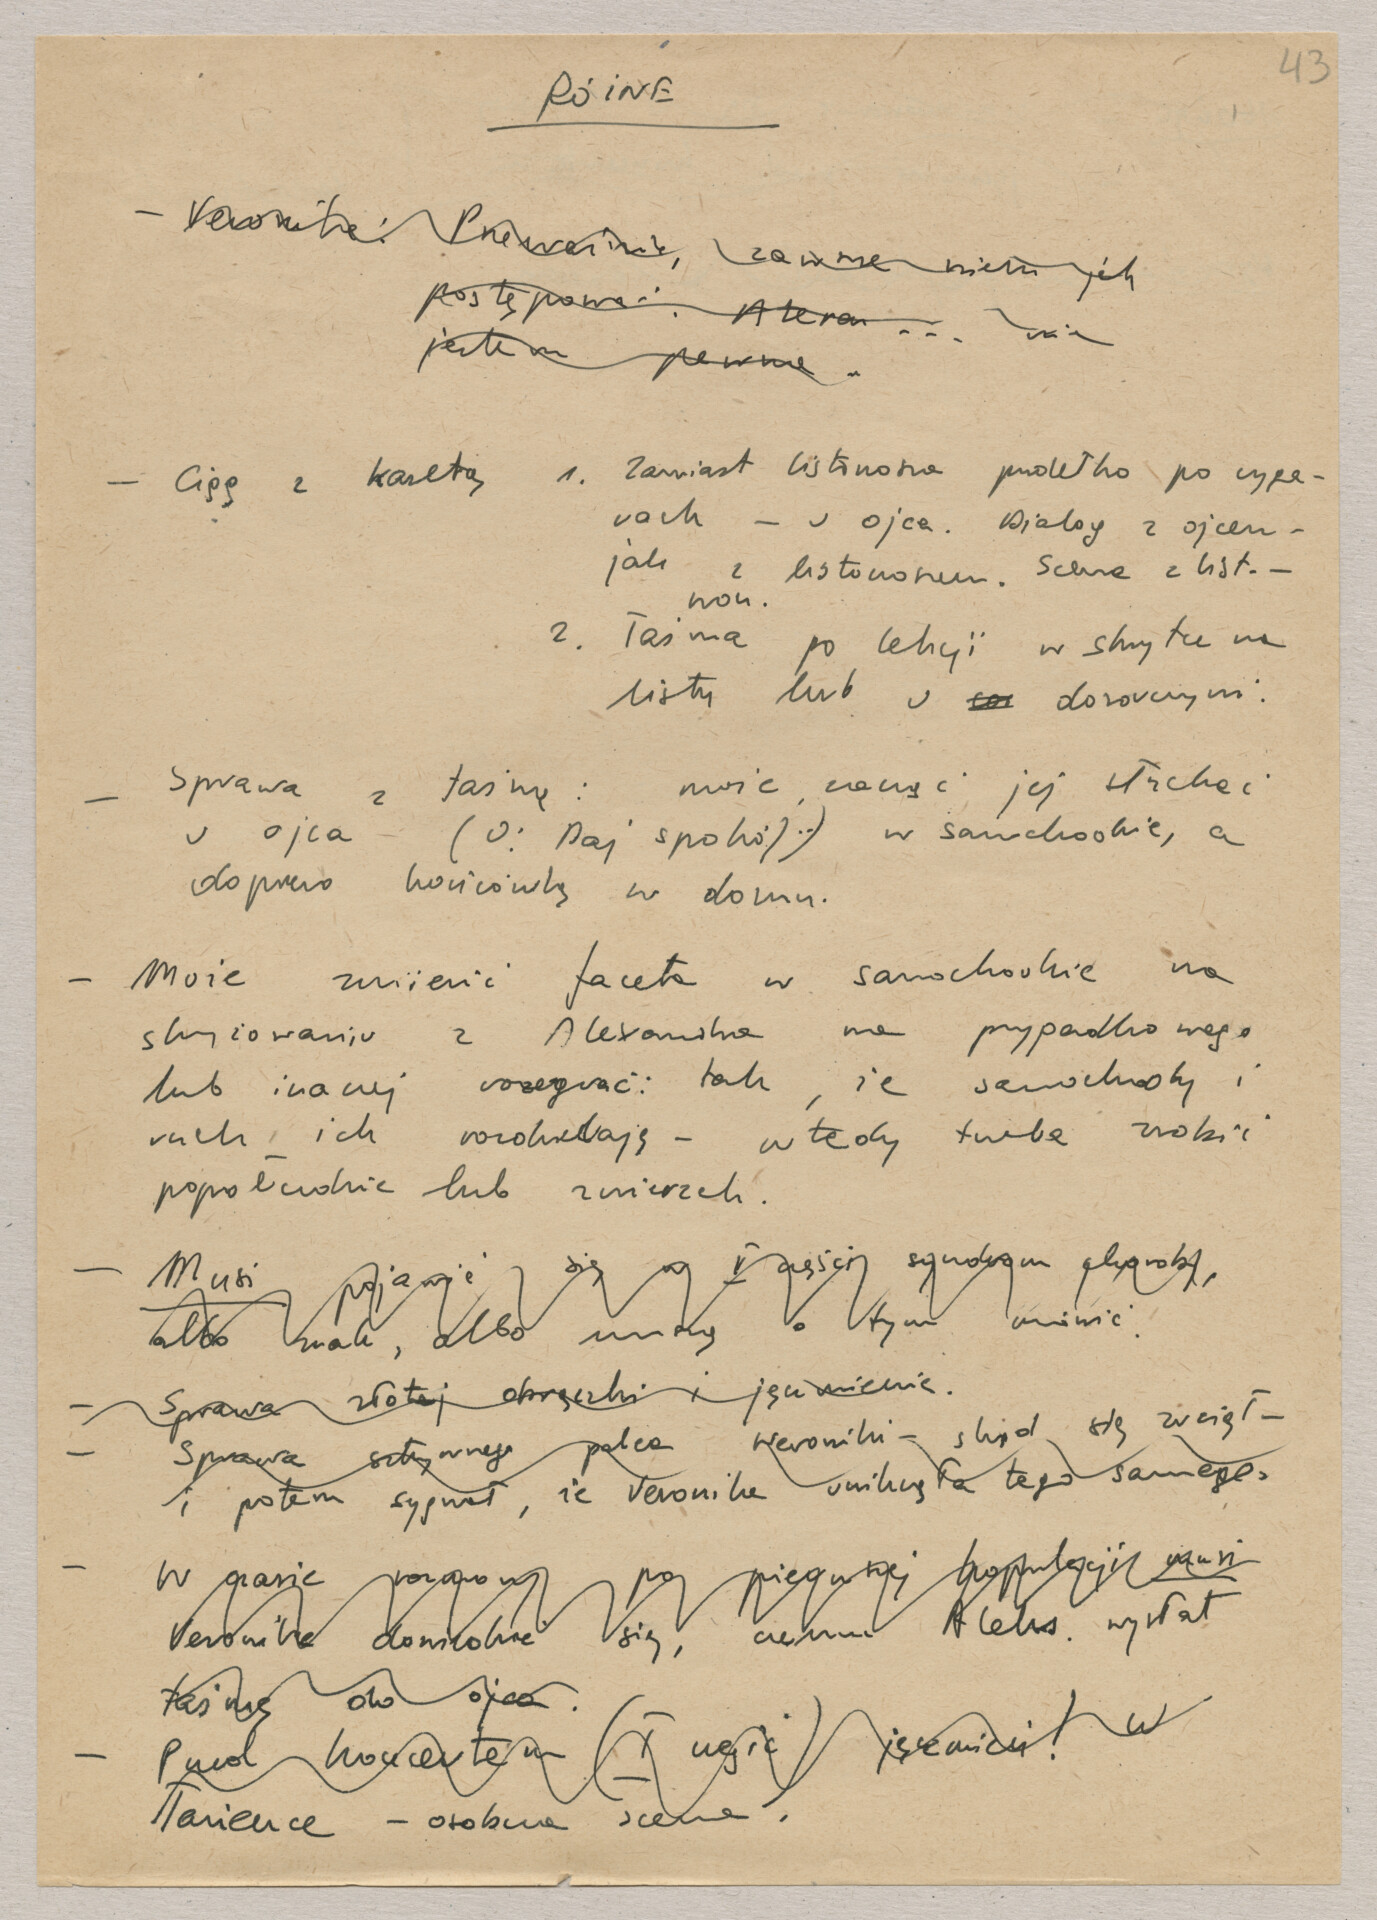 43
RÓŻNE
- Veronika: Przeważnie, zawsze wiem jak
postępować. Ateraz ... nie
jestem pewna.
- Ciąg z kasetą 1. Zamiast listonosza pudełko po cyga-
rach - u ojca. Dialog z ojcem -
jak z listonoszem. Scena z list. -
won.
2. Taśma po lekcji w skrytce na
listy lub u dozorczyni.
- Sprawa z taśmą: może zacząć jej słuchać
u ojca (O: Daj spokój..) w samochodzie, a
dopiero końcówkę w domu.
- Może zmienić faceta w samochodzie na
skrzyżowaniu z Alexandra na przypadkowego
lub inaczej rozegrać: tak, że samochody i
ruch ich rozdzielają - wtedy trzeba zrobić
popołudnie lub zmierzch.
- Musi pojawić się w I części syndrom choroby,
albo znak, albo muszą o tym mówić.
- Sprawa złotej obrączki i jęczmienia.
- Sprawa sztywnego palca Weroniki - skąd się wziął -
i potem sygnał, że Veronika uniknęła tego samego.
- W czasie rozmowy po pierwszej kopulacji musi
Veronika dowiedzieć się, czemu Aleks. wysłał
taśmę do ojca.
- Przed koncertem (I część) jęczmień! W
łazience - osobna scena.